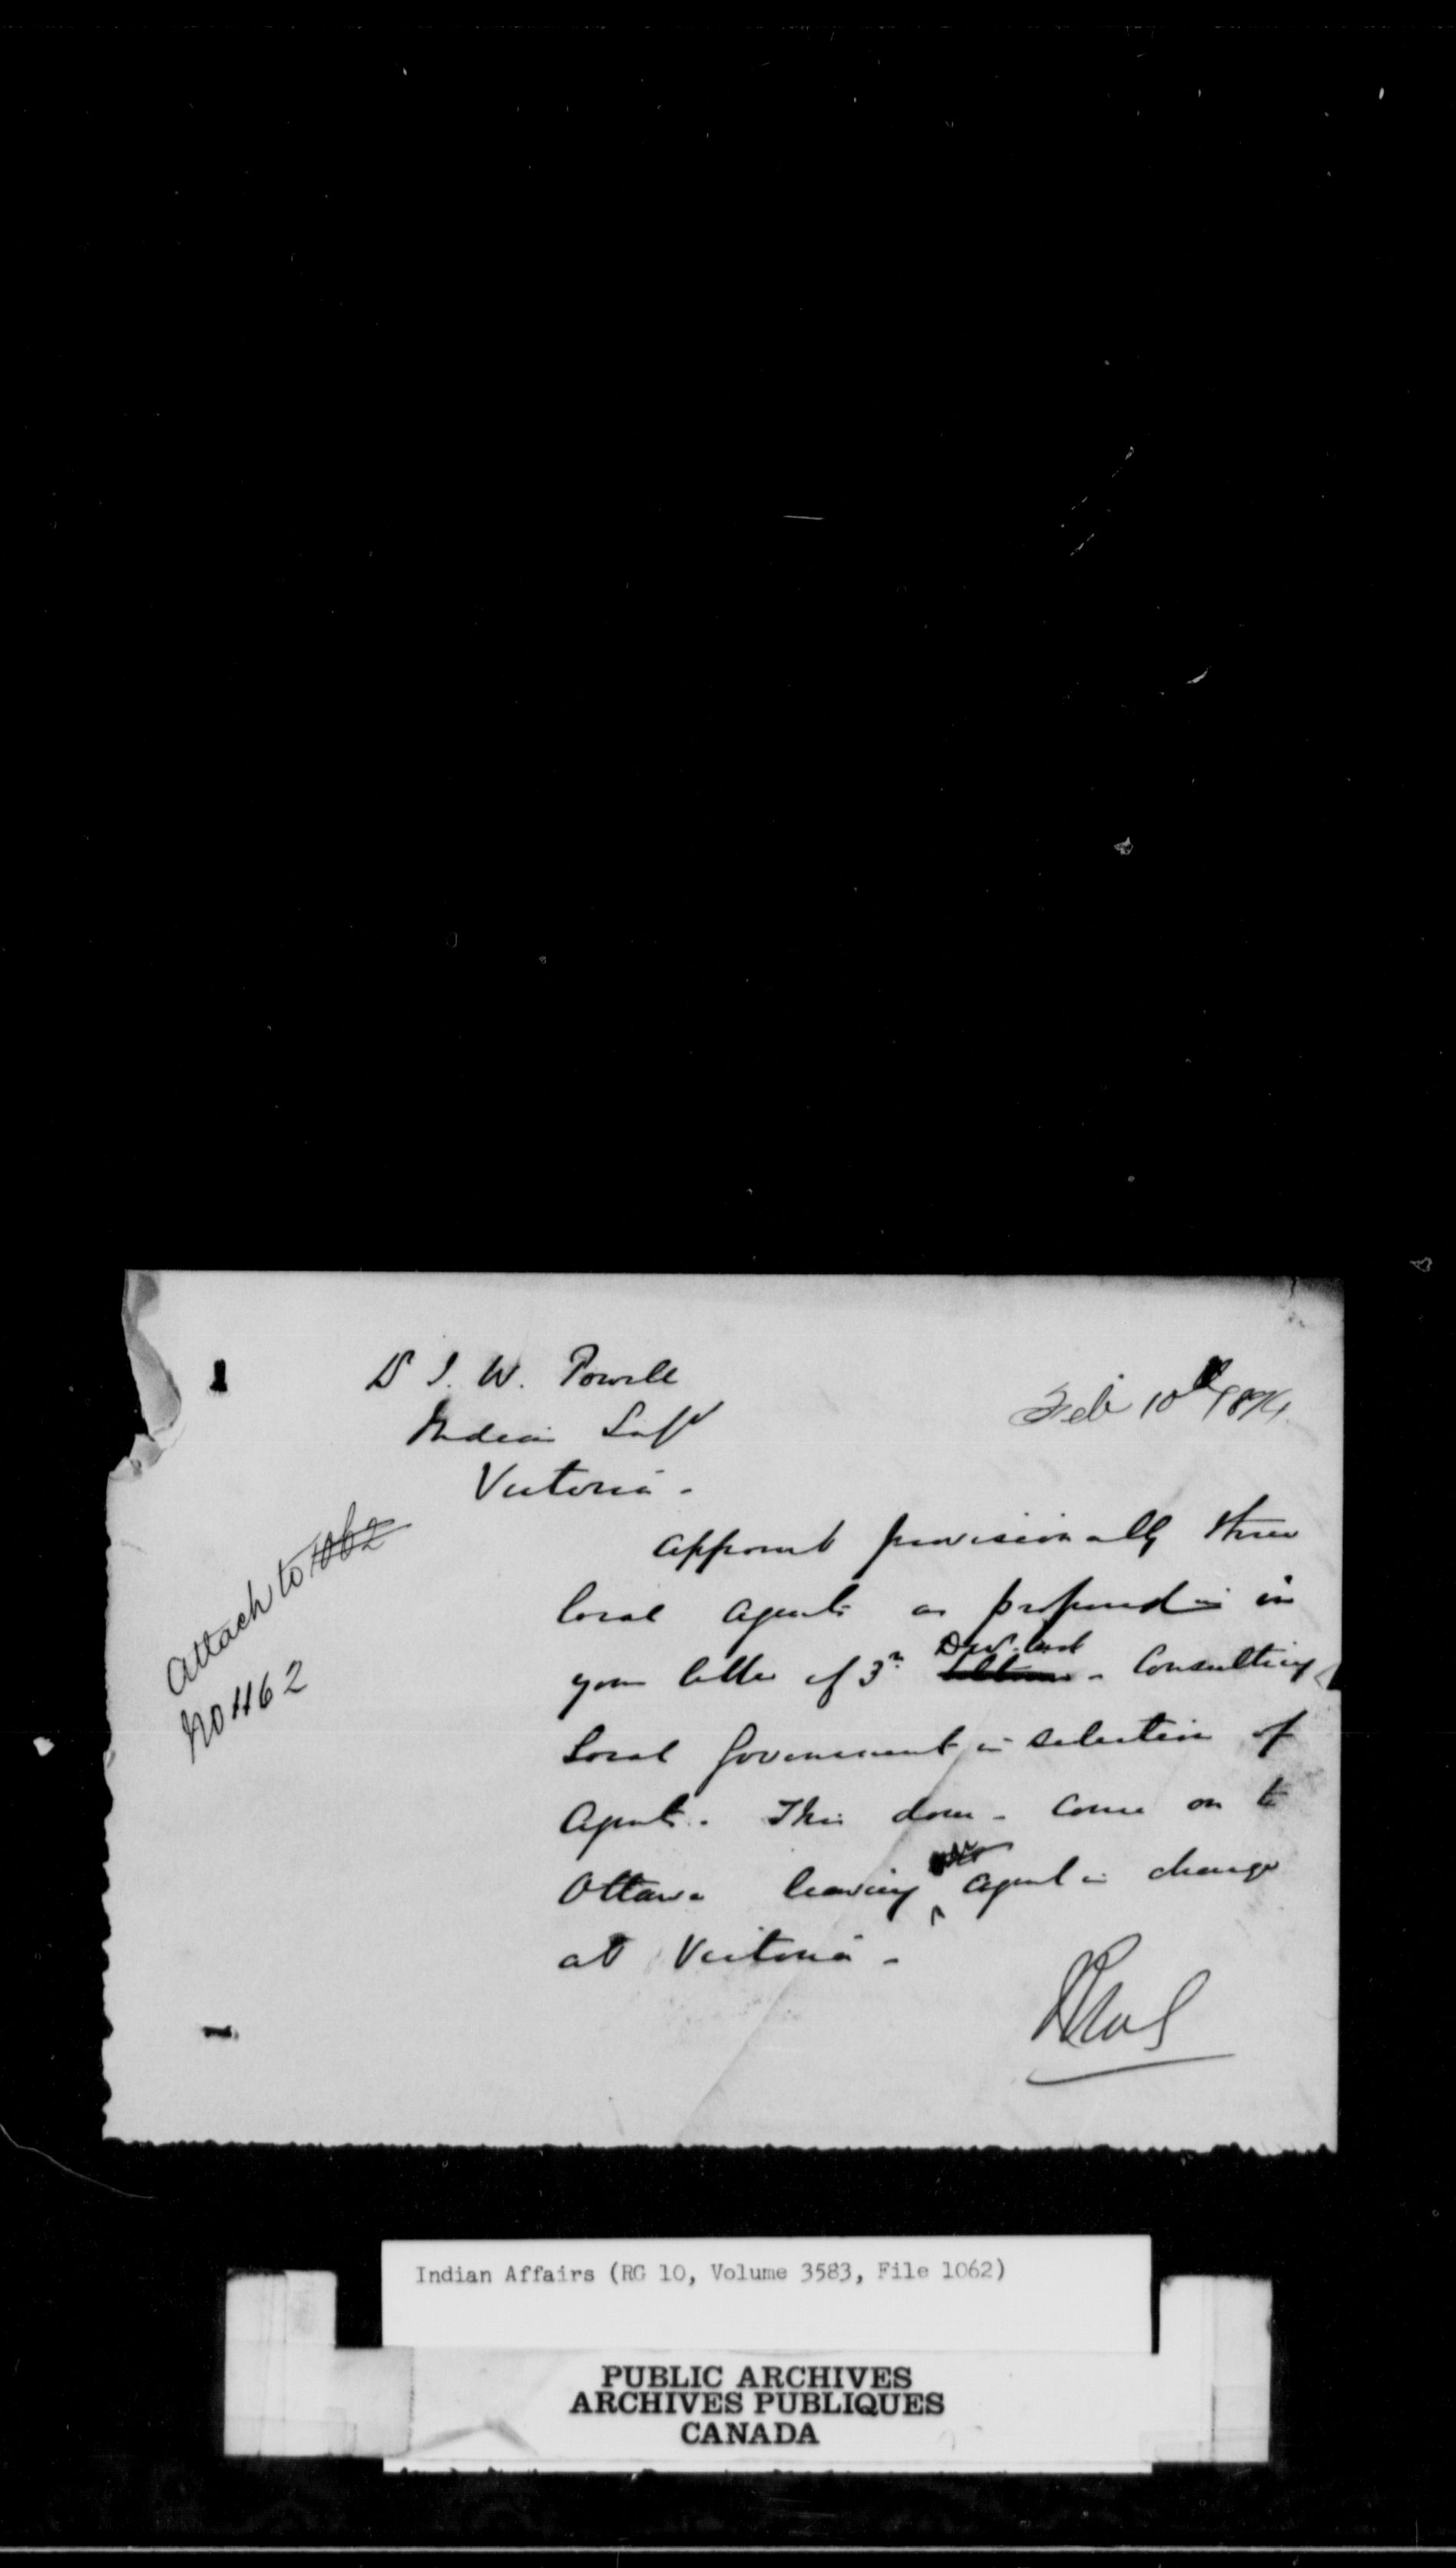 Dr I. W. Powell
Feb 10th 1874
Indian Supt
Victoria -
Attach to 1062
No 1162
Appoint provisionally three
local agents as proposed in
your letter of 3rd Decr. last - Consulting
Local Government in selection of
Agents. This done - come on to
Ottawa leaving agent in charge
at Victoria -
Indian Affairs (RG 10, Volume 3583, File 1062)
PUBLIC ARCHIVES
ARCHIVES PUBLIQUES
CANADA